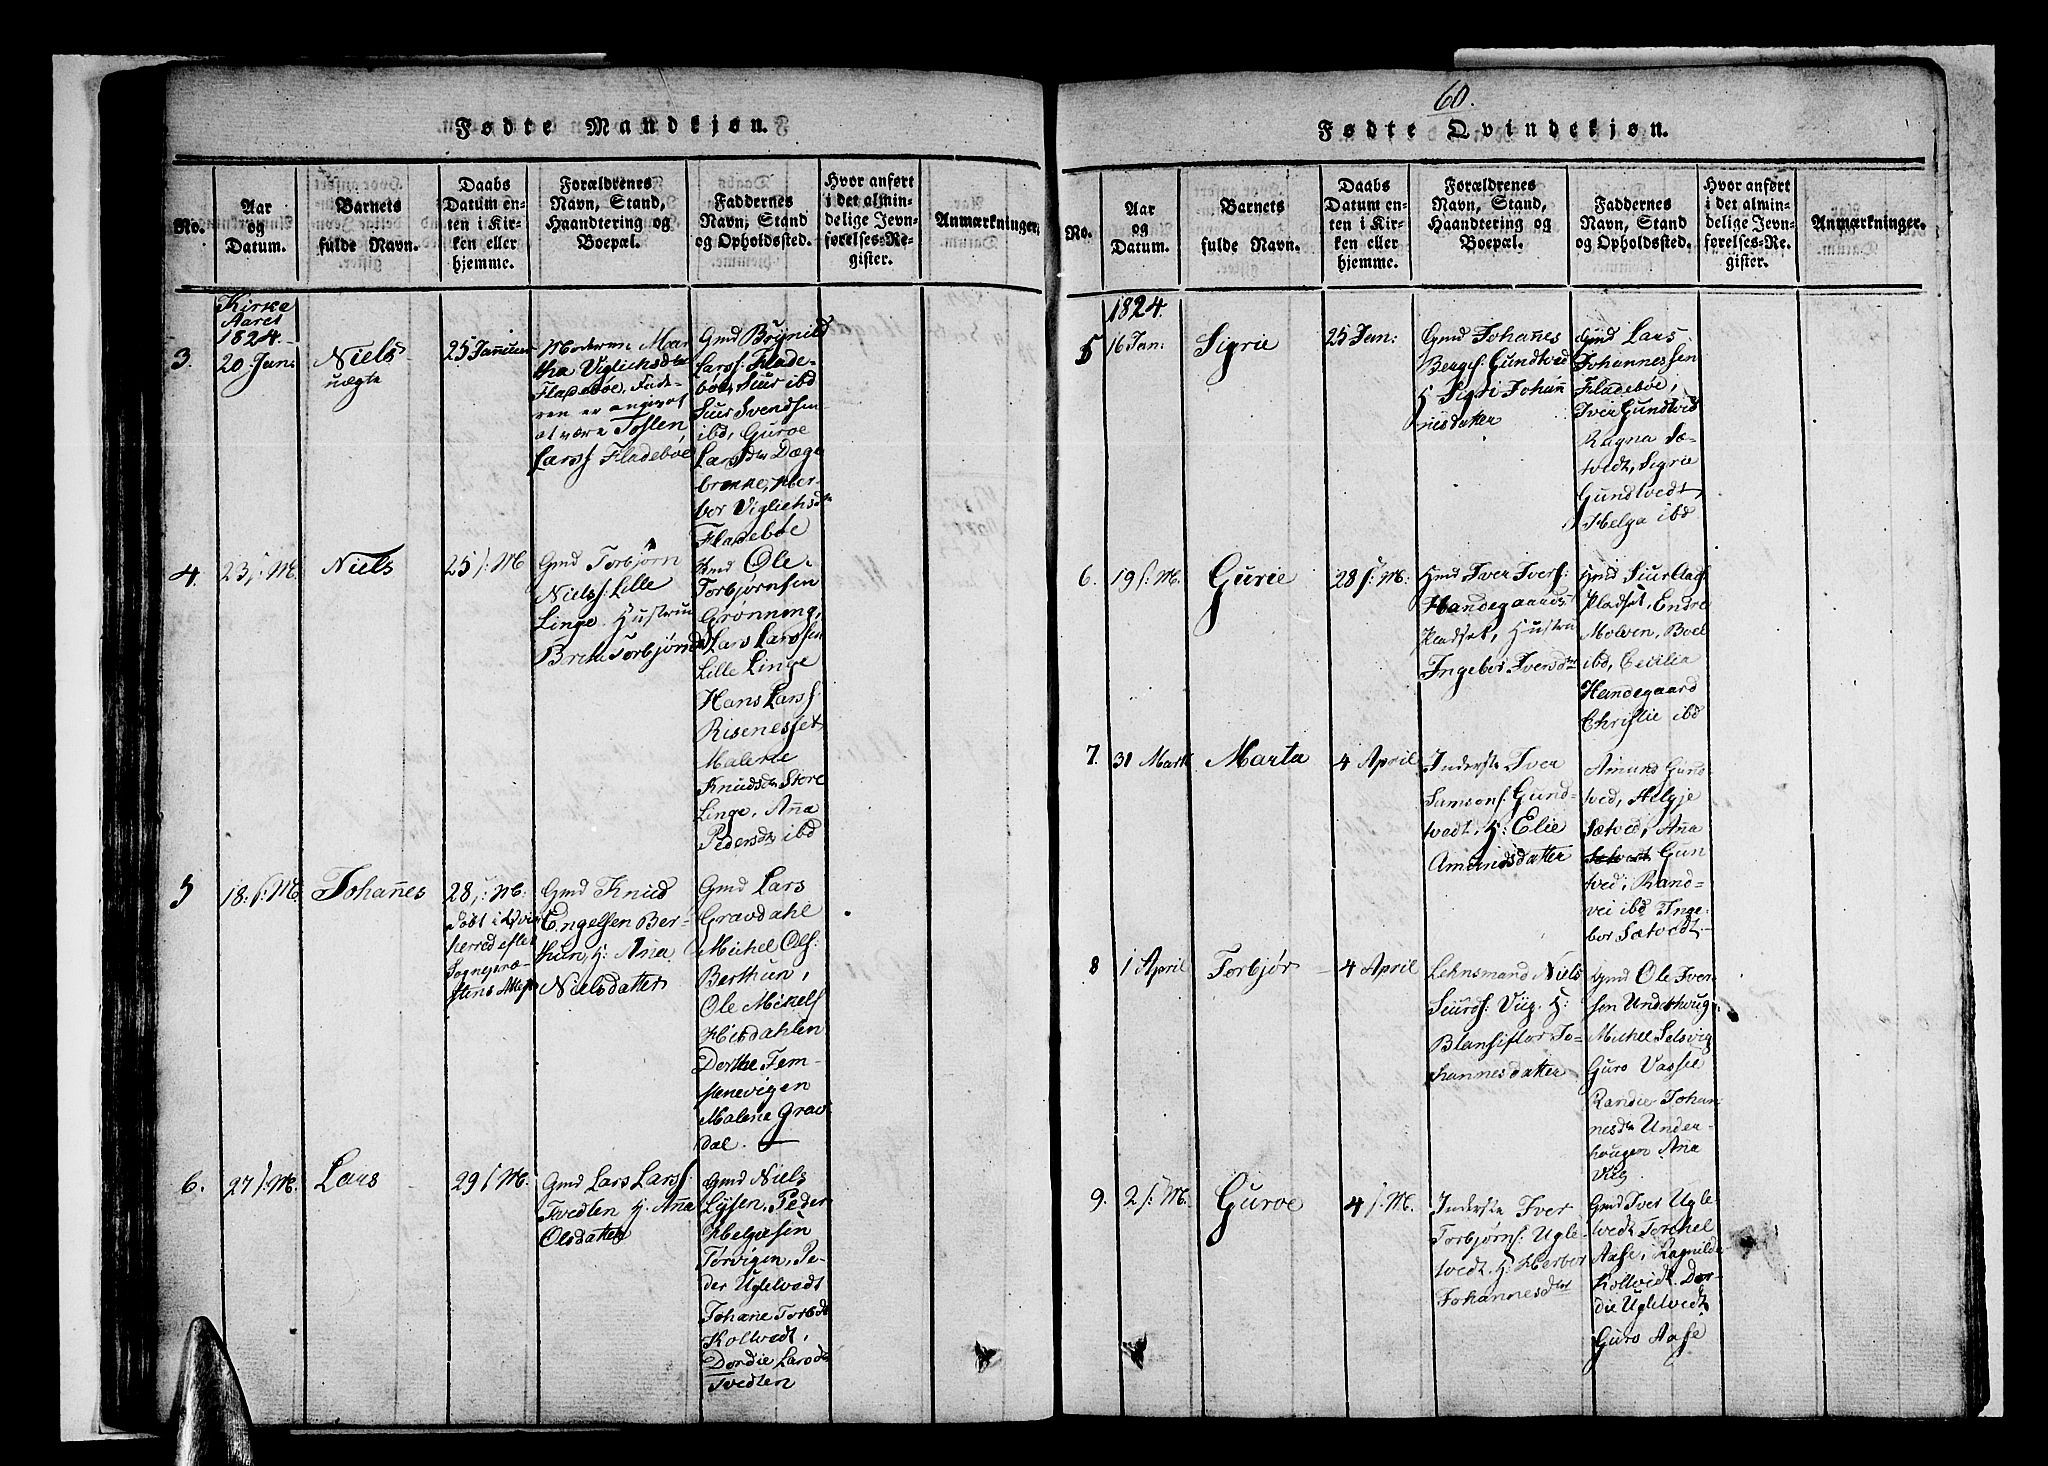 Fødte Mandkjøn.
No.
Aar
og
Datum.
Barnets
fulde Navn.
Daabs
Datum en-
ten i Kir-
ken eller
hjemme.
Forældrenes
Navn, Stand,
Haandtering og
Boepæl.
Faddernes
Navn, Stand
og Opholdssted.
Hvor anført
i det almin-
delige Jevn-
førelses-Re-
gister.
Anmærkninger.
Kirke
Aaret
1824
3.
20 Jan:
Niels
uægte
25 Januar
Moderen Mar
tha Viglichsdtr
Fladebøe, Fade-
ren er angivet
at være Tosten
Larss Fladebøe
Gmd Brynild
Larss: Flade-
bøe, Siur ibd
Siur Svendsen
ibd, Guroe
Larsdtr Dage
brekke, Her-
bor Viglichsdtr
Fladebøe
4.
23 /: M.
Niels
25 /: M
Gmd Torbjørn
Nielss: Lille
Linge, Hustrue
Brita Torbjørnsd
Gmd Ole
Torbjørnsen
Grønning,
Lars Larssen
Lille Linge
Hans Larss
Risenesset
Malene
Knudsdtr Store
Linge, Aña
Pedersdtr ibd
5
18 /: M.
Johañes
28 /: M.
døbt i Qvin
herred efter
Sognepræ-
stens Attest
Gmd Knud
Engelsen Ber-
thun, H: Aña
Nielsdatter
Gmd Lars
Gravdahl
Michel Ols:
Berthun,
Ole Mikels
Hibdahlen
Dorthe Fem-
stenevigen
Malene Grav
dal.
6.
27 /: M.
Lars
29 / M:
Gmd Lars Larss
Tvedten H: Aña
Olsdatter
Gmd Niels
Lijsen, Peder
Helgesen
Tørvigen, Pe-
der Uglevedt
Johane Torbd
Koltvedt,
Dordie Larsdtr
Tvedten
60.
Fødte Qvindekjøn.
No.
Aar
og
Datum.
Barnets
fulde Navn.
Daabs
Datum en-
ten i Kir-
ken eller
hjemme.
Forældrenes
Navn, Stand,
Haandtering og
Boepæl.
Faddernes
Navn, Stand
og Opholdssted.
Hvor anført
i det almin-
delige Jevn-
førelses-Re-
gister.
Anmærkninger.
1824.
5
16 Jan:
Sigrie
25 Jan:
Gmd Johañes
Bergs: Gundtved
H Sigri Johañ
nisdatter
Gmd Lars
Johannessen
Fladebøe,
Iver Gundtvid
Ragna Sæ-
tvedt, Sigrie
Gundtvedt,
Helga ibd
6.
19 /: M.
Gurie
28 /: M:
Hmd Iver Ivers:
Handegaards
Pladset, Hustru
Ingebor Iversdtr
Hmd Siur Aags
Pladset, Endre
Molven, Boel
ibd, Cecilia
Handegaard
Christie ibd
7.
31 Marti
Marta
4 April
Inderste Iver
Samsons: Gund-
tvedt, H: Elie
Amundsdatter
Amund Gund-
tved, Helgje
Sætved, Aña
Gun
tved, Rand-
vei ibd Inge-
bor Sætvedt.
8
1 April
Torbjør
4 April
Lehnsmand Niels
Siurds: Viig, H:
Blansiflor Jo-
hannesdatter
Gmd Ole Iver-
sen Underhoug-
Michel Selsvig
Guro Vassel
Randie Johan
nesdtr Under-
hougen Ana
Viig
9.
2 /: M.
Guroe
4 /: M.
Inderste Iver
Torbjørns: Ugle-
tvedt, H: Herbor
Johannesdter
Gmd Iver Ugle
tvedt Torchel
Aase, Ragnilde
Koltvidt, Dor-
die Ugletvedt
Guro Aase